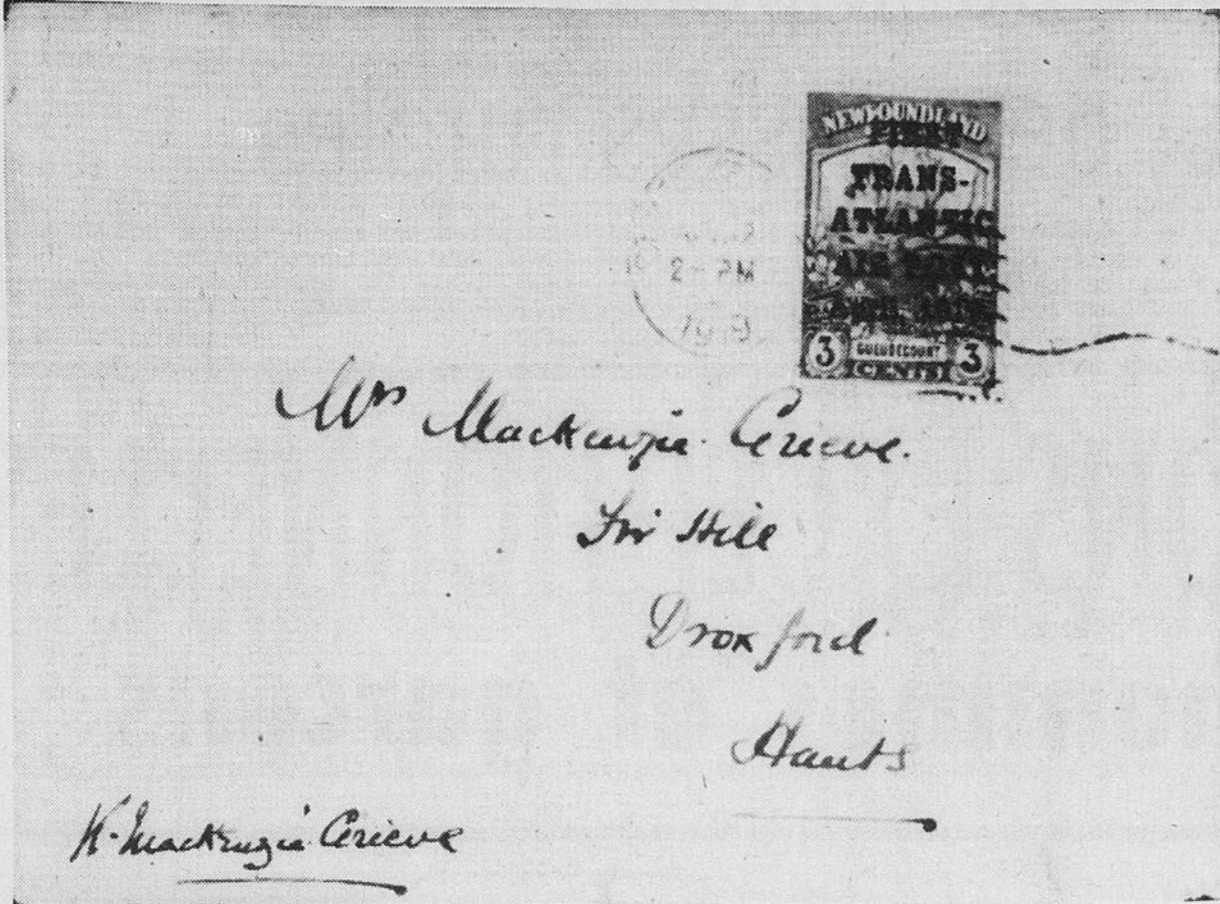 NEWFOUNDLAND
FIRST
TRANS-
ATLANTIC
AIR POST
April, 1919.
3 GUEUDECOURT 3
CENTS
2- PM
1919
Mrs Mackenzie Grieve.
Fir Hill
Droxford
Hants
K. Mackenzie Grieve